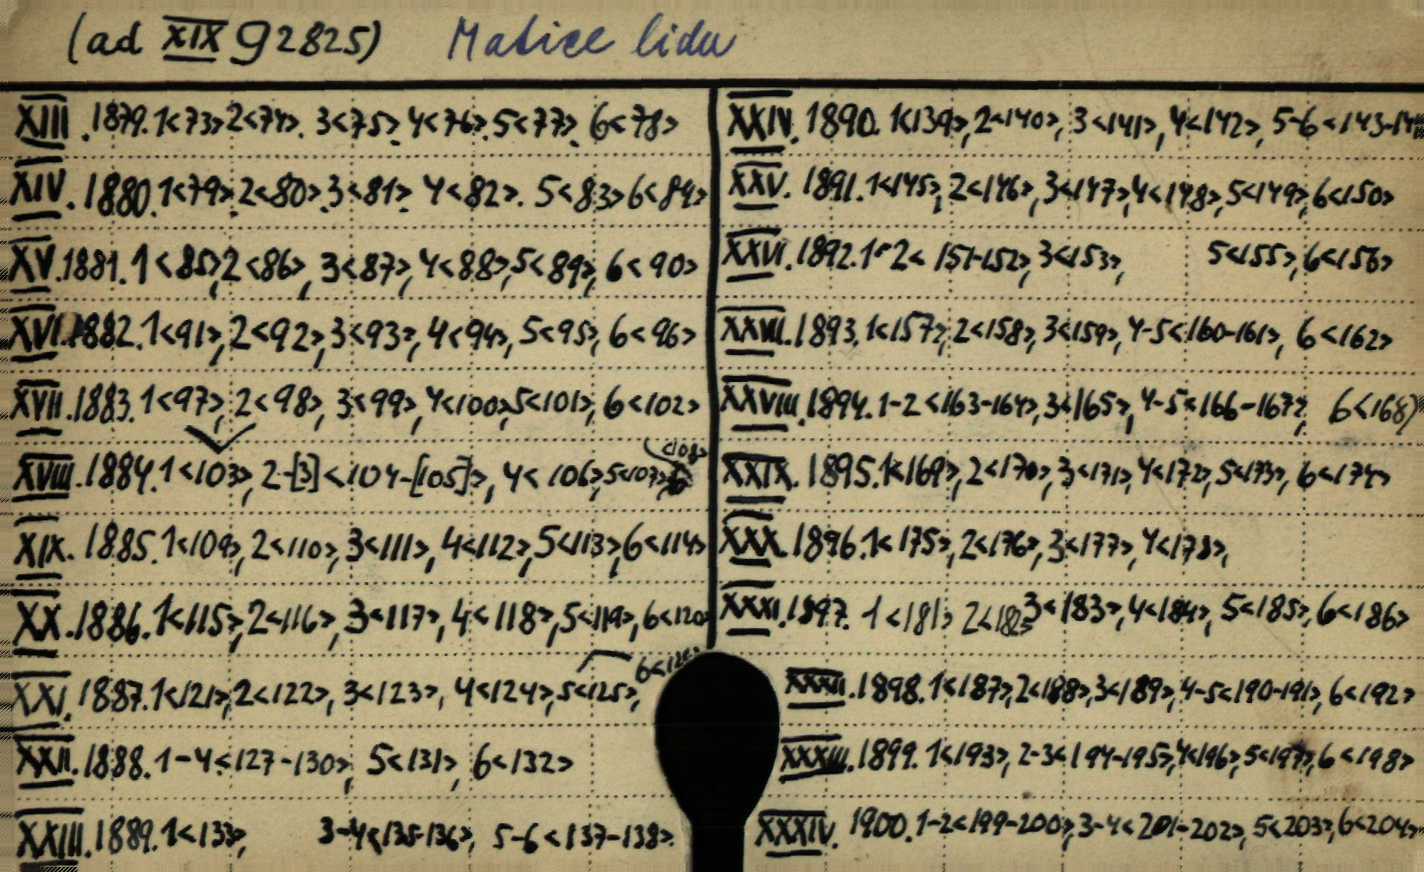 (ad XIX G 2825) Matice lidu
XIII. 1879. 1<73>, 2<74>, 3<75>, 4<76>, 5<77>, 6<78>
XIV. 1880. 1<79>, 2<80>, 3<81>, 4<82>. 5<83> 6<84>
XV. 1881. 1<85>, 2<86>, 3<87>, 4<88>, 5<89>, 6<90>
XVI. 1882. 1<91>, 2<92>, 3<93>, 4<94>, 5<95>, 6<96>
XVII. 1883. 1<97>, 2<98>, 3<99>, 4<100>, 5<101>, 6<102>
XVIII. 1884. 1<103>, 2-[3]<104-[105]>, 4<106>, 5<107>, 6 <108>
XIX. 1885. 1<109>, 2<110>, 3<111>, 4<112>, 5<113>, 6<114>
XX. 1886. 1<115>, 2<116>, 3<117>, 4<118>, 5<119>, 6<120>
XXI. 1887. 1<121>, 2<122>, 3<123>, 4<124>, 5<125>, 6<126>
XXII. 1888. 1-4<127-130>, 5<131>, 6<132>
XXIII. 1889. 1<133>, 3-4<135-136>, 5-6<137-138>
XXIV. 1890. 1<139>, 2<140>, 3<141>, 4<142>, 5-6<143-144
XXV. 1891. 1<145>, 2<146>, 3<147>, 4<148>, 5<149>, 6<150>
XXVI. 1892. 1-2<151-152>, 3<153>, 5<155>, 6<156>
XXVII. 1893. 1<157>, 2<158>, 3<159>, 4-5<160-161>, 6<162>
XXVIII. 1894. 1-2<163-164>, 3<165>, 4-5<166-167>, 6<168>
XXIX. 1895. 1<169>, 2<170>, 3<171>, 4<172>, 5<173>, 6<174>
XXX. 1896. 1<175>, 2<176>, 3<177>, 4<178>,
XXXI. 1897. 1<181> 2<182> 3<183>, 4<184>, 5<185>, 6<186>
XXXII. 1898. 1<187>, 2<188>, 3<189>, 4-5<190-191>, 6<192>
XXXIII. 1899. 1<193>, 2-3<194-195>, 4<196>, 5<197>, 6<198>
XXXIV. 1900. 1-2<199-200>, 3-4<201-202>, 5<203>, 6<204>